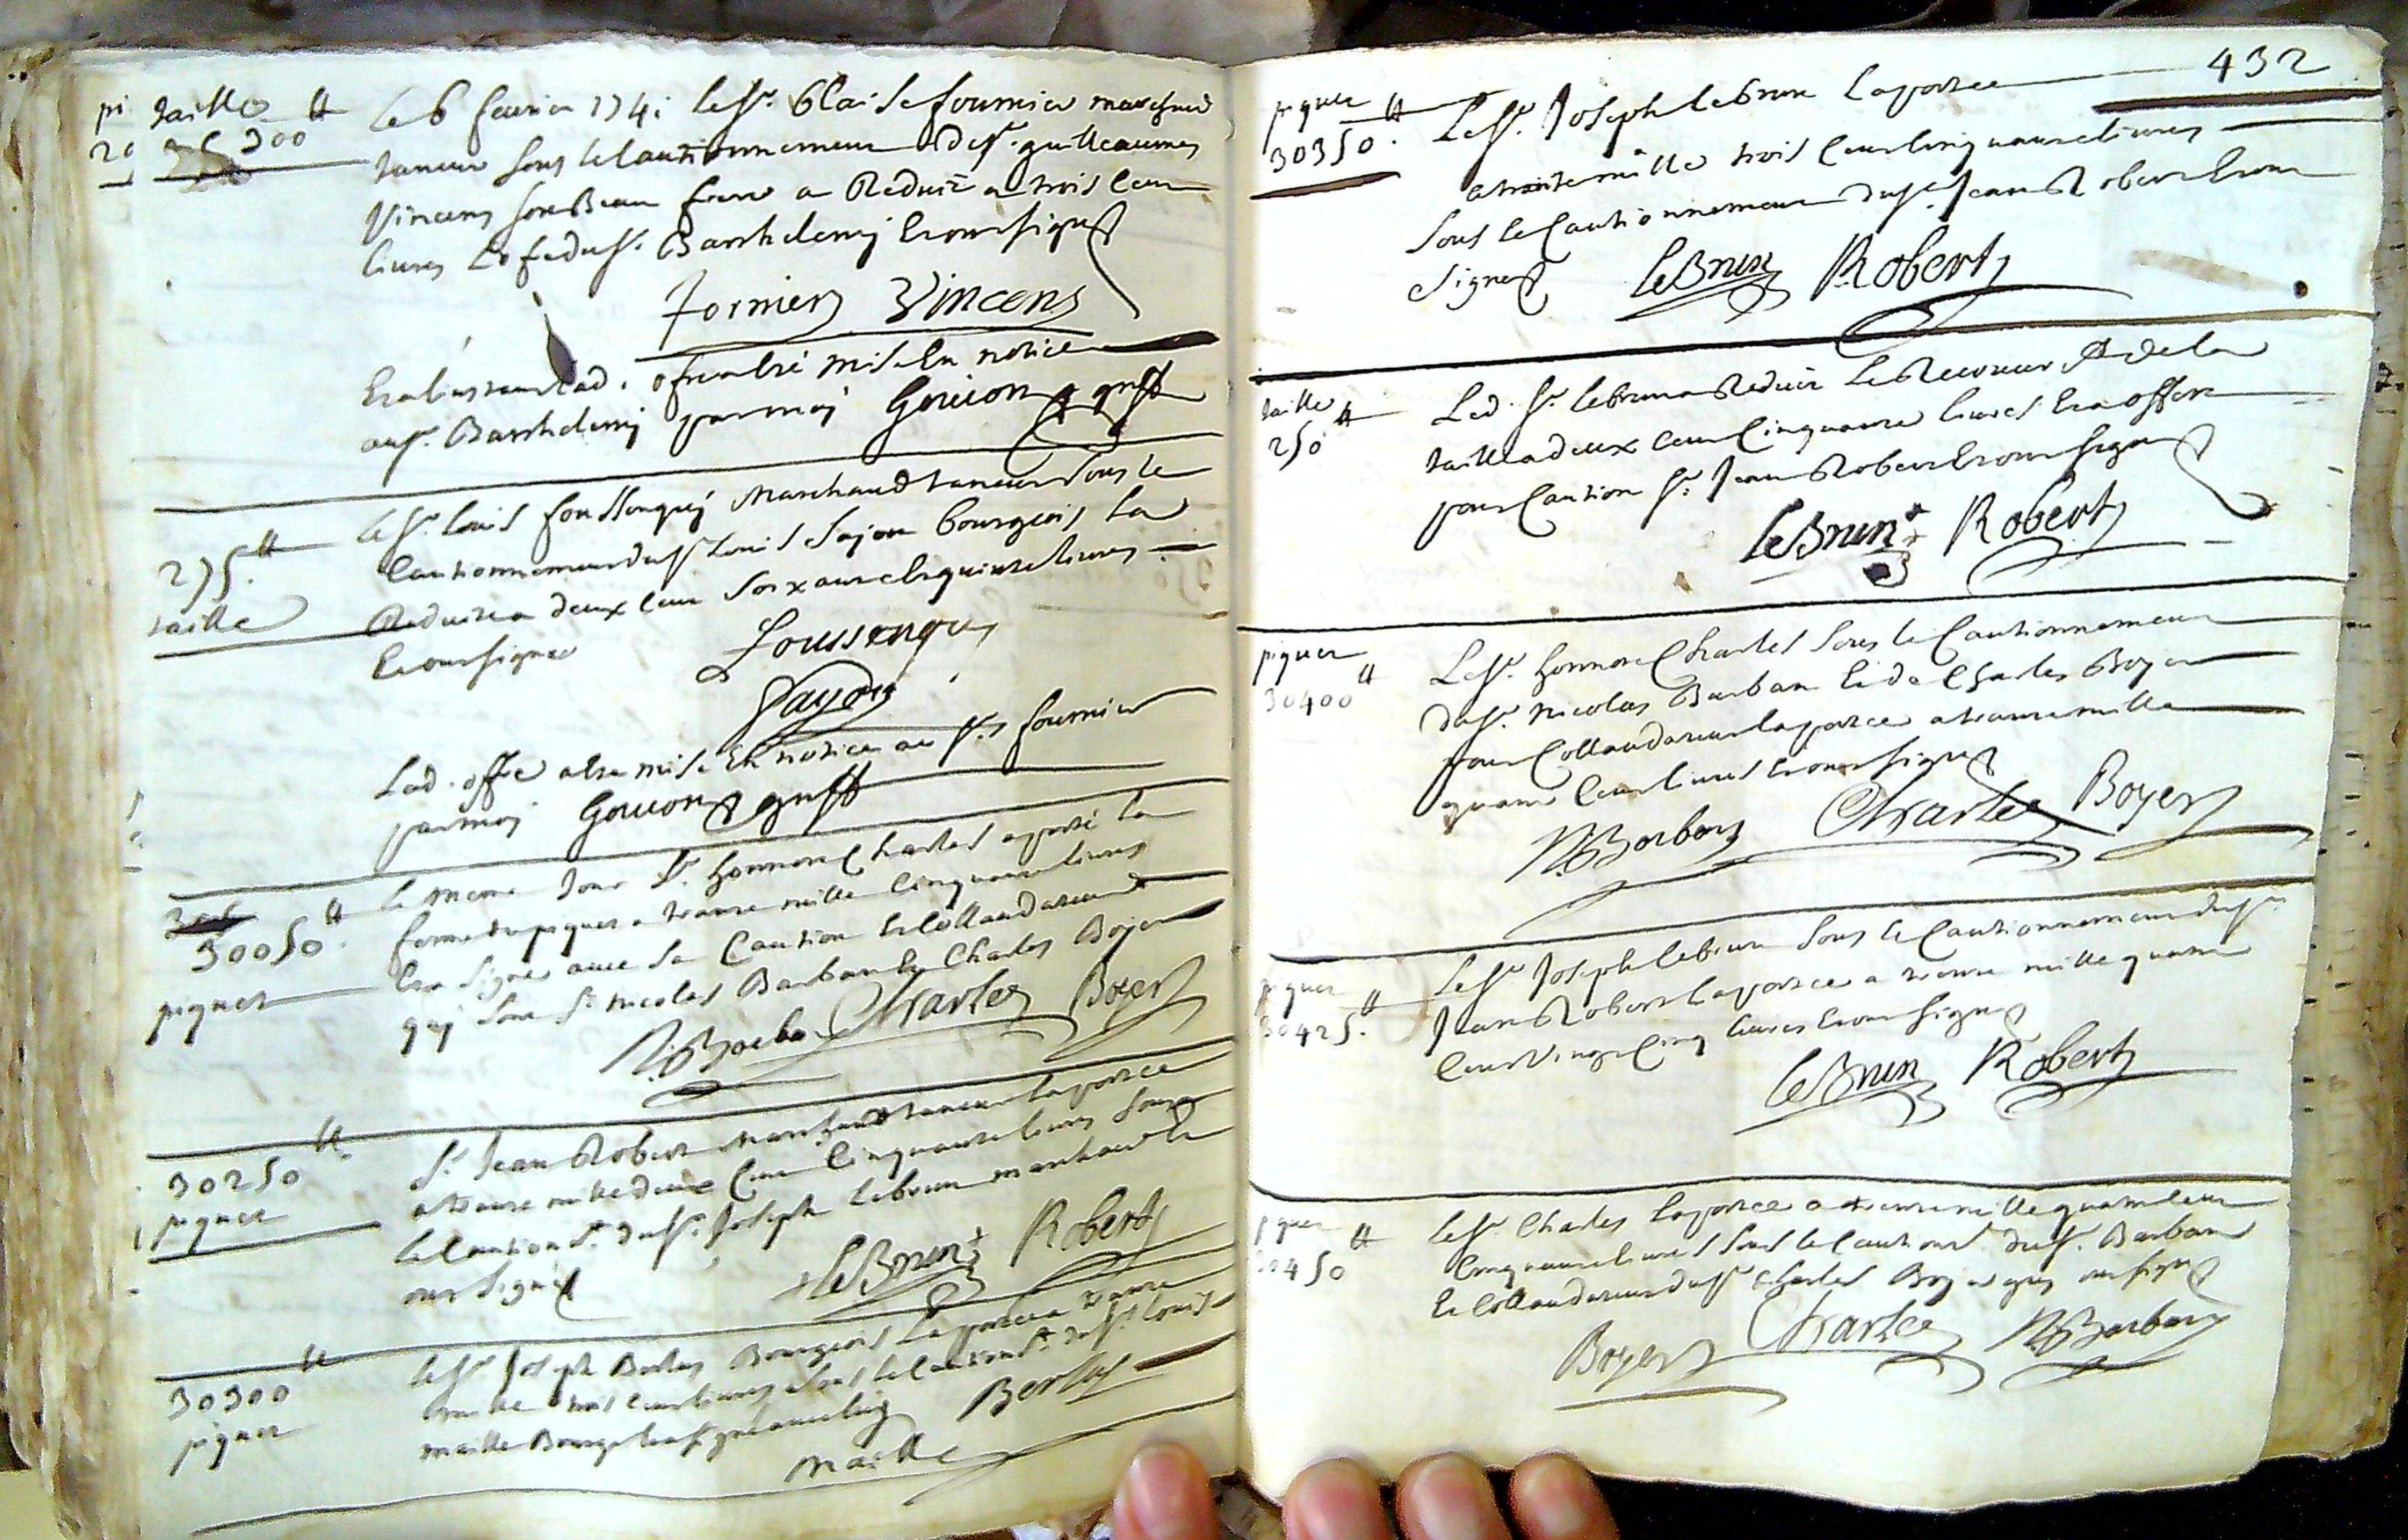 taille 300 ₶
Le 6 fevrier 1741 le Sr. Blaise fournier marchand
taneur sous le Cautionnement de Sr. guilleaumes
Vincens son Beau frere a Reduit a trois Cens
livres du Sr. Barthelemj Et ont signes
fornier Vincens
mise En notice
au Sr. Barthelemj par moj Gouion greff
275 ₶ taille
le Sr. louis foussenquj Marchand taneur sous le
Cautionnement du Sr louis bourgeois la
Reduite a deux Cens soixante Et quinse livres
Et ont signes foussenquy
Lad. offre a Ete mise En notice au Sr. fournier
par moj Gouion greff
30050 ₶ piquet
le meme Jour Sr. honnore Charles a porté la
ferme du piquet a trante mille Cinquante livres
Et a signe avec sa Caution Et Collaudateur
quj sont Sr nicolas Barban Et Charles Boyer
N. Barban Charles Boyer
30250 ₶ piquet
Sr. Jean Robert Marchand taneur la portee
a trante mille deux Cens Cinquante livres sous
le Caution.t du Sr. Joseph lebrun marchand Et
ont signes
leBrun Robert
30300 ₶ piquet
le Sr Joseph Bourgeois la portee a trante
mille trois Cens livres sous le Caution.t du Sr. louis
maille Bourge
maille
432
piquet 30350 ₶
Le Sr. Joseph lebrun la portee
a trante mille trois Cens Cinquante livres
sous le Cautionnement du Sr. Jean Robert Et ont
signes leBrun Robert
taille 250 ₶
Led. Sr. lebrun a Reduit de la
taille a deux Cens Cinquante livres Et a offert
pour Caution Sr. Jean Robert Et ont signes
leBrun Robert
piquet 30400 ₶
Le Sr. honnore Charles sous le Cautionnement
du Sr. nicolas Barban Et de Charles Boyer
pour Collaudateur la portee a trante mille
quatre Cens livres Et ont signes
N. Barban Charles Boyer
piquet 30425 ₶
Le Sr Joseph lebrun sous le Cautionnement du Sr.
Jean Robert la portee a trente mille quatre
Cens Vingt Cinq livres Et ont signes
leBrun Robert
le Sr. Charles la portee a trente mille quatre Cens
Cinquante livres sous le Caution.t du Sr. Barban
Et Collaudateur du Sr Charles Boyer quj ont signes
Boyer Charles N. Barban